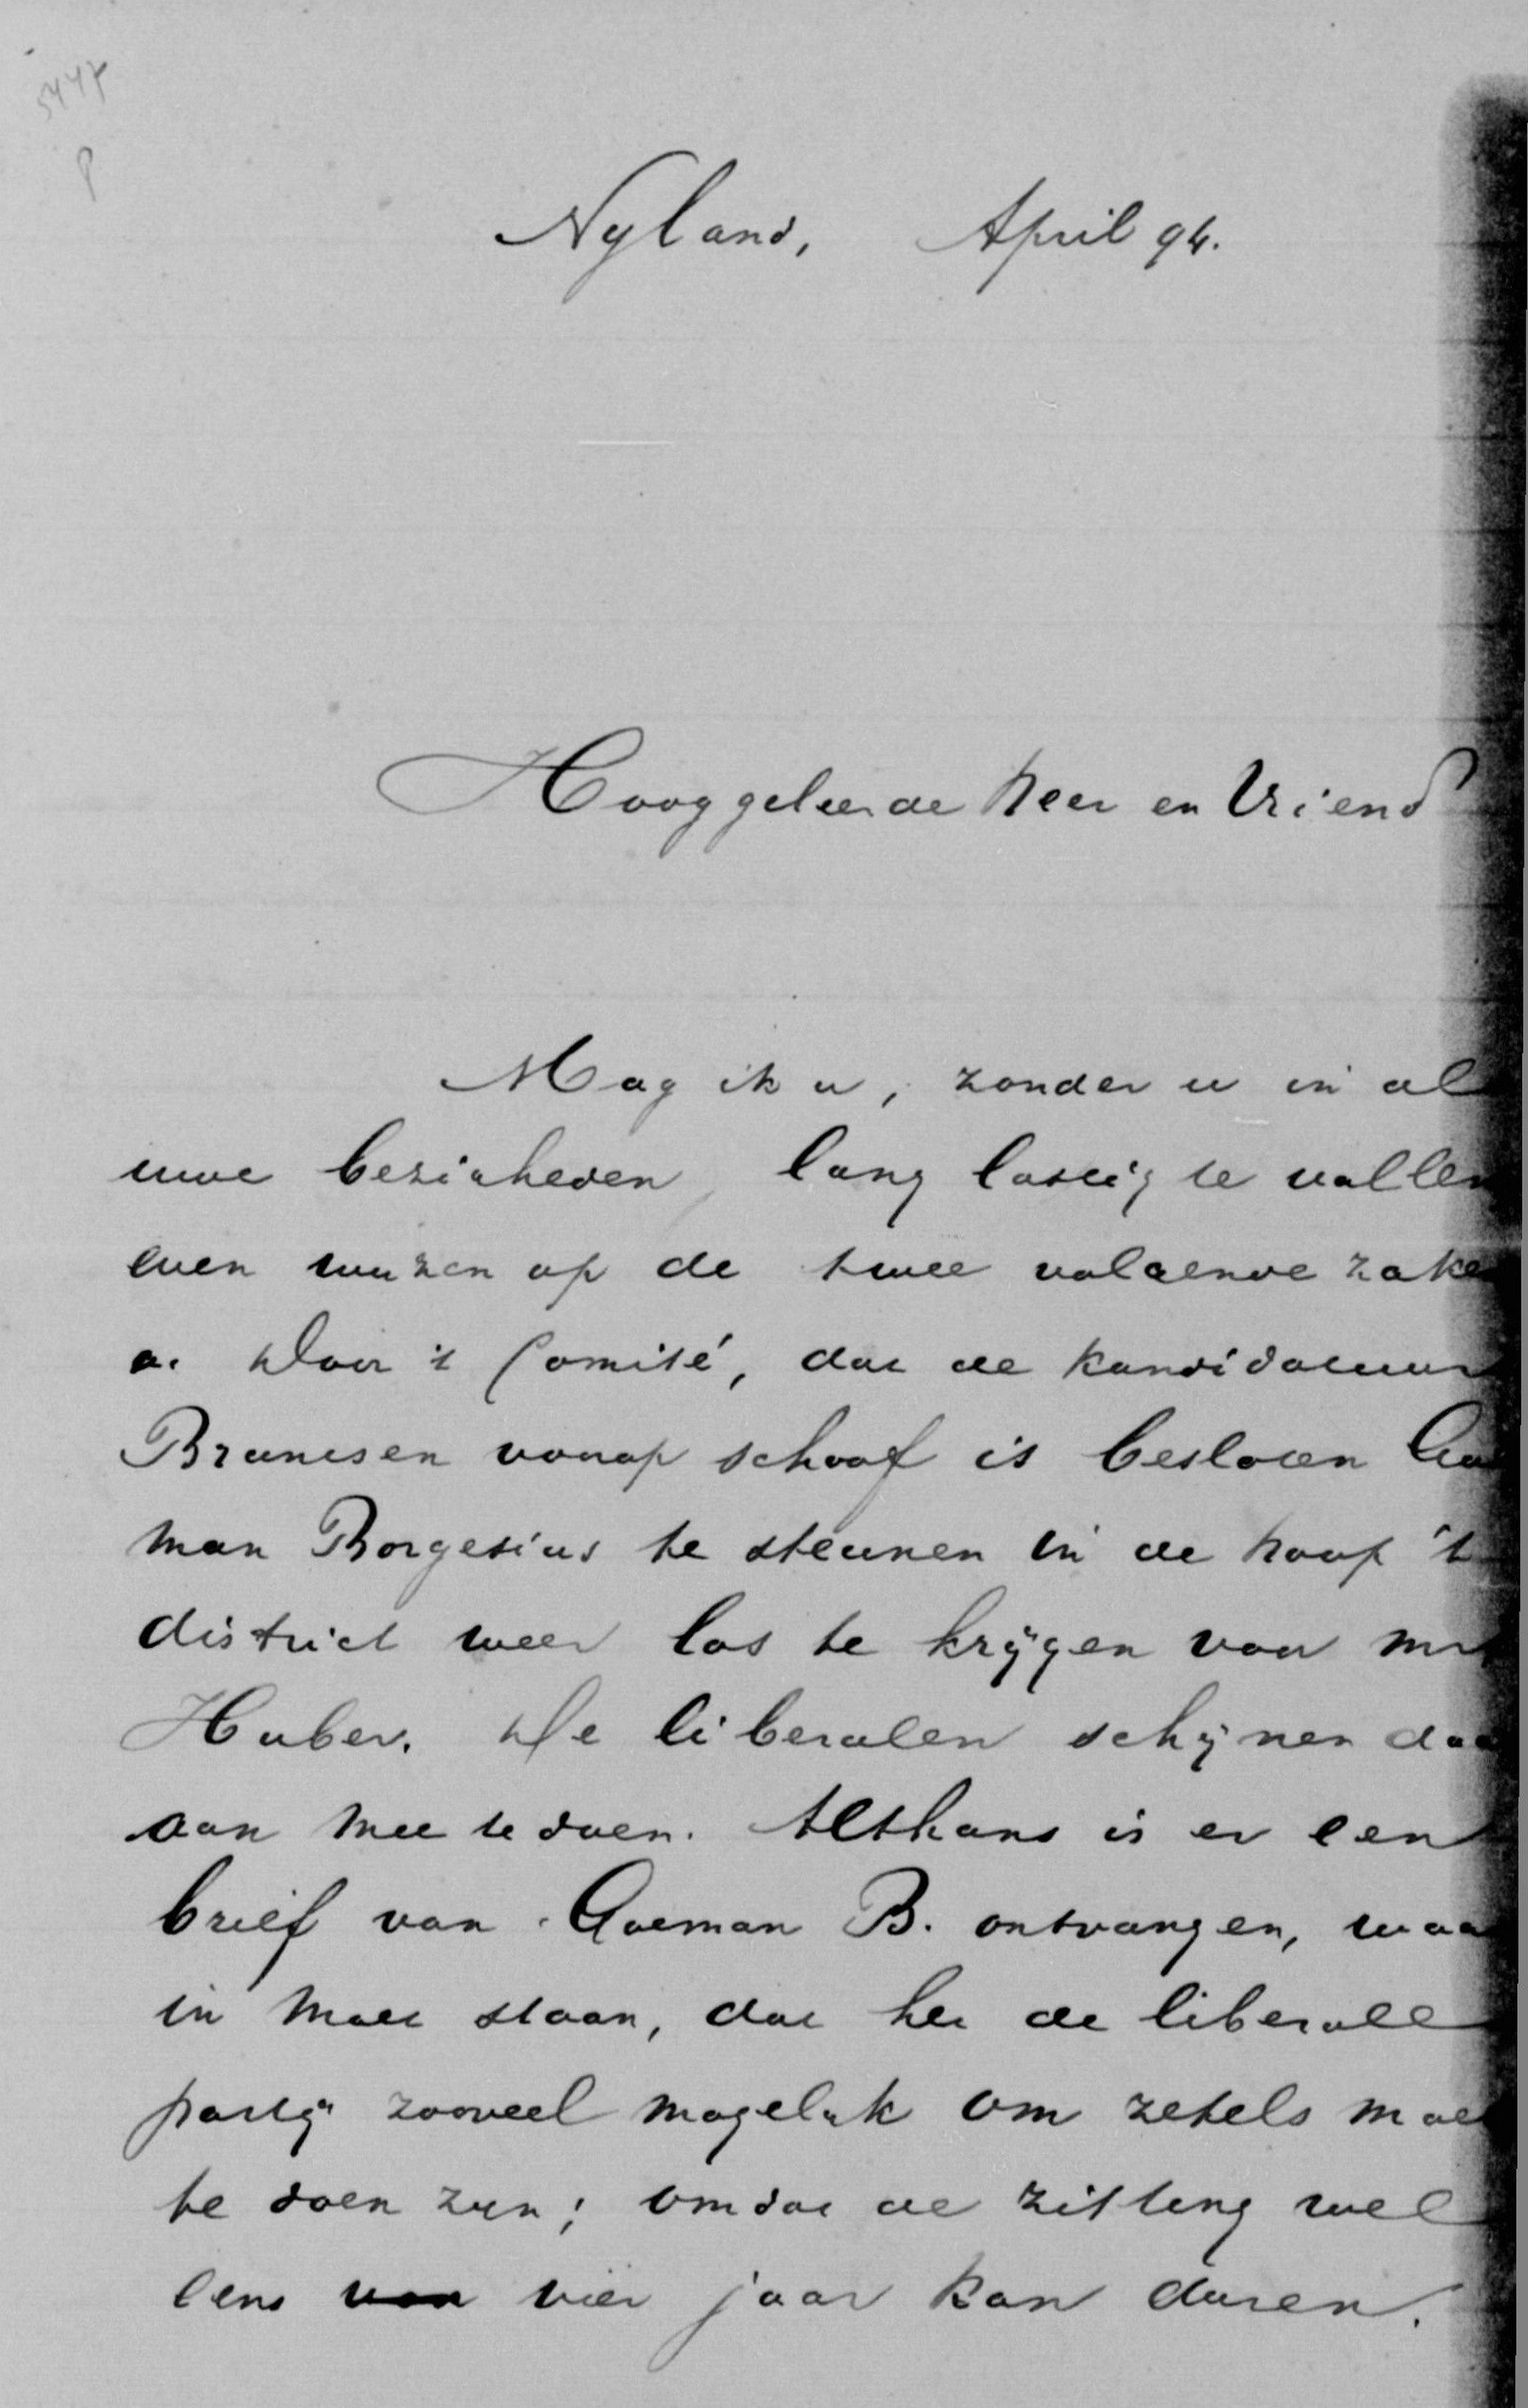 5447
P
Nyland, April 94.
Hooggeleerde heer en Vriend
Mag ik u, zonder u in al
uwe bezigheden, lang lastig te vallen
even wijzen op de twee volgende zaken
a. Door 't Comité, dat de kandidatuur
Brantsen voorop schoof is besloten Goe
man Borgesius te steunen in de hoop 't
district weer los te krijgen voor mr
Huber. De liberalen schijnen daar
aan mee te doen. Althans is er een
brief van Goeman B. ontvangen, waar
in moet staan, dat het de liberale
partij zooveel mogelijk om zetels moet
te doen zijn; omdat de zitting wel
eens van vier jaar kan duren.